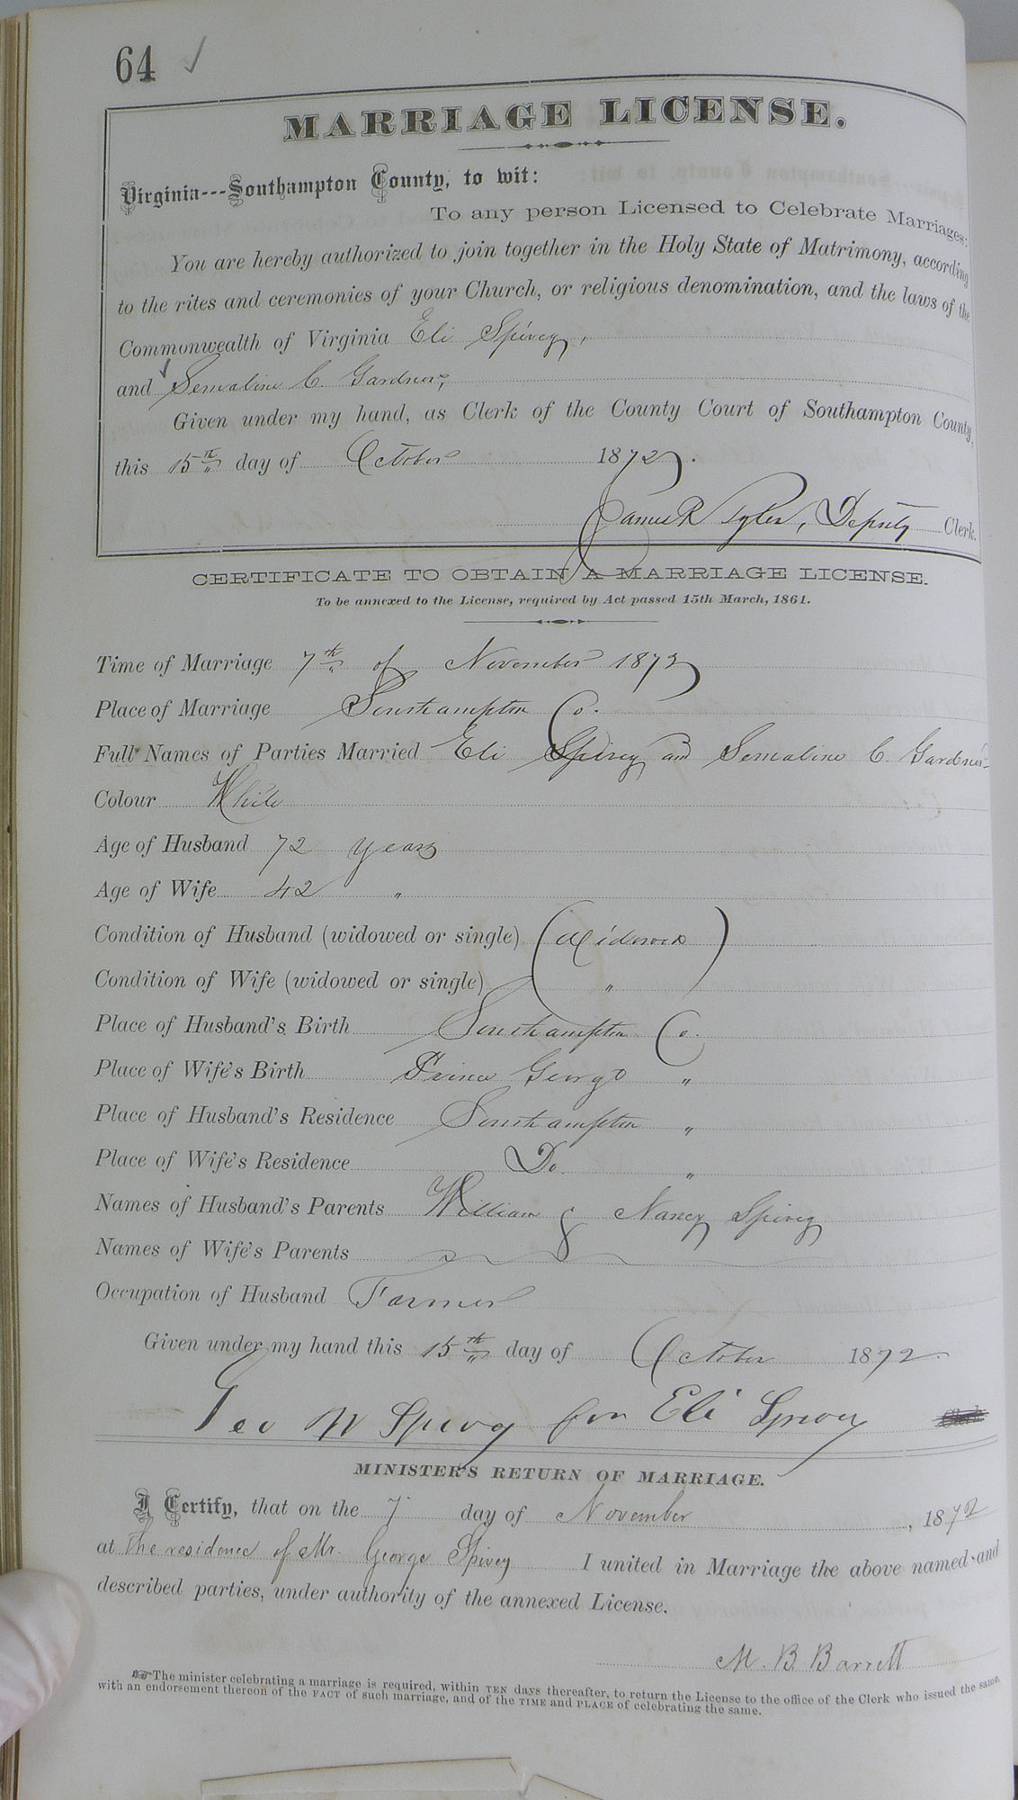 64 ✓
MARRIAGE LICENSE.
Virginia---Southampton County, to wit:
To any person Licensed to Celebrate Marriages:
You are hereby authorized to join together in the Holy State of Matrimony, according
to the rites and ceremonies of your Church, or religious denomination, and the laws of the
Commonwealth of Virginia Eli Spivey,
and Semaline C. Gardner,
Given under my hand, as Clerk of the County Court of Southampton County,
this 15th day of October 1872.
James R Tyler, Deputy Clerk.
CERTIFICATE TO OBTAIN A MARRIAGE LICENSE.
To be annexed to the License, required by Act passed 15th March, 1861.
Time of Marriage 7th of November 1872
Place of Marriage Southampton Co.
Full Names of Parties Married Eli Spivey and Semaline C. Gardner
Colour White
Age of Husband 72 years
Age of Wife 42 "
Condition of Husband (widowed or single) (Widowed)
Condition of Wife (widowed or single) "
Place of Husband's Birth Southampton Co.
Place of Wife's Birth Prince George "
Place of Husband's Residence Southampton "
Place of Wife's Residence Do. "
Names of Husband's Parents William & Nancy Spivey
Names of Wife's Parents
Occupation of Husband Farmer
Given under my hand this 15th day of October 1872.
Geo W Spivey for Eli Spivey Clerk
MINISTER'S RETURN OF MARRIAGE.
I Certify, that on the 7 day of November, 1872
at the residence of Mr. George Spivey I united in Marriage the above named and
described parties, under authority of the annexed License.
M. B. Barrett
The minister celebrating a marriage is required, within TEN days thereafter, to return the License to the office of the Clerk who issued the same,
with an endorsement thereon of the FACT of such marriage, and of the TIME and PLACE of celebrating the same.